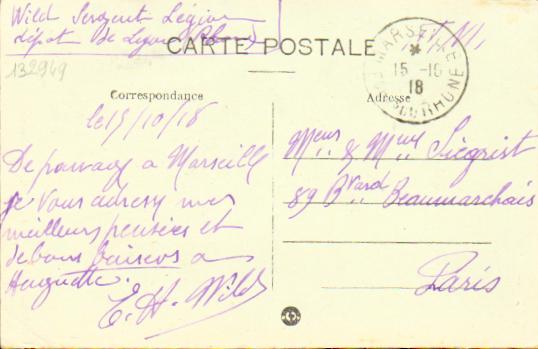 Wild Sergent Légion
dépot de Lyon (Rhône)
CARTE POSTALE
F.M.
132949
MARSEILLE
15 -10
18
BCHES DU RHONE
Correspondance
Adresse
le 15/10/18
De passage a Marseille
je vous adresse mes
meilleurs pensées et
de bons baisers a
Huguette.
E. H. Wild
Meur & Mme Siegrist
89 Bvard Beaumarchais
Paris